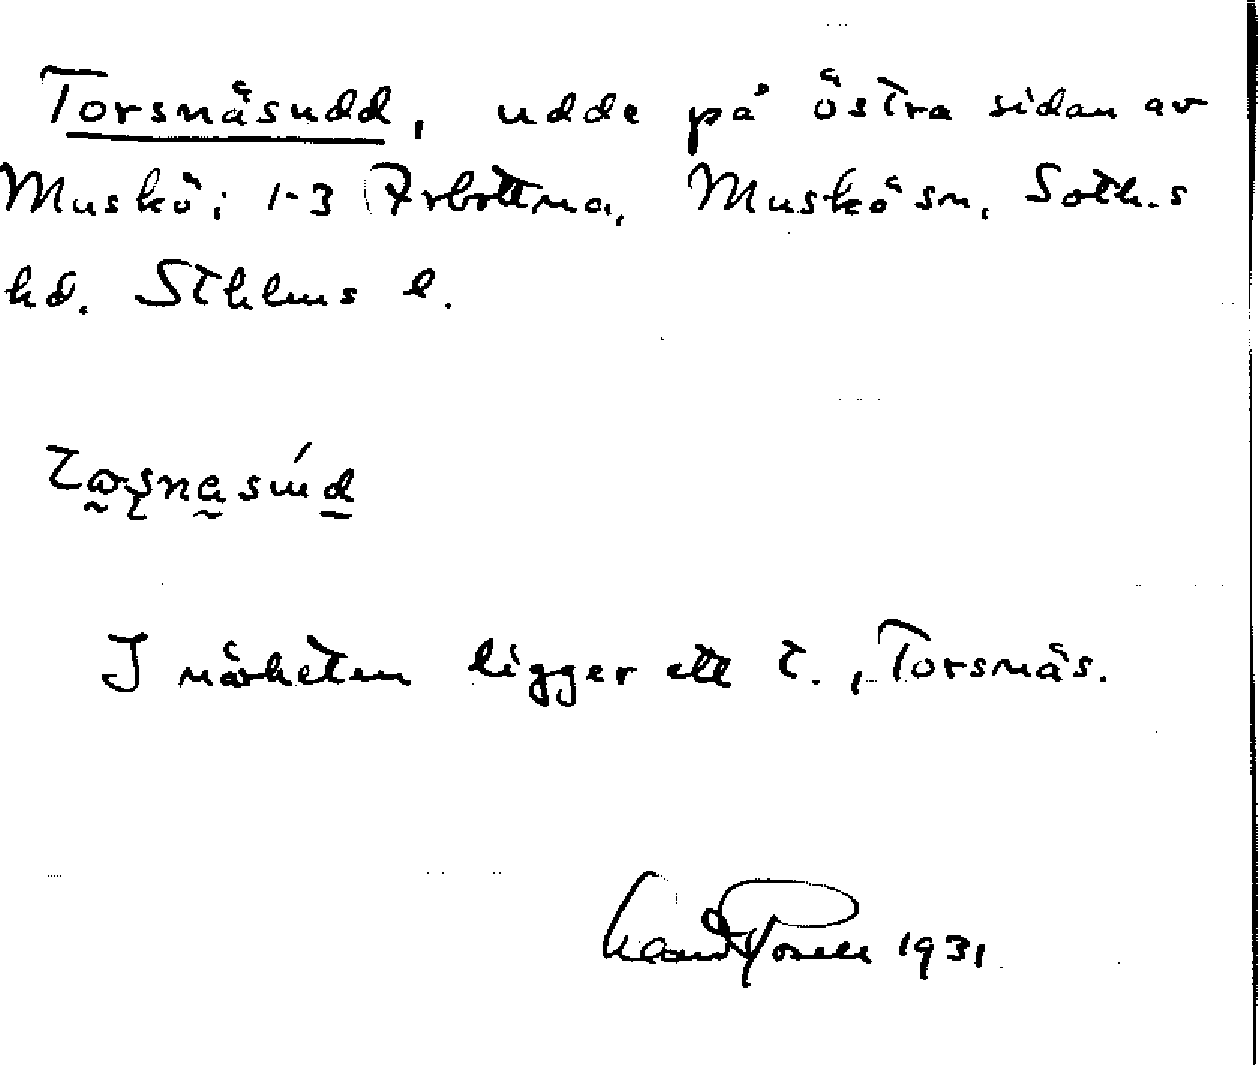 Torsnäsudd, udde på östra sidan av
Muskö; 1-3 Arbottna, Muskö sn, Soth.s
hd. Sthlms l.
I närheten ligger ett t., Torsnäs.
1931